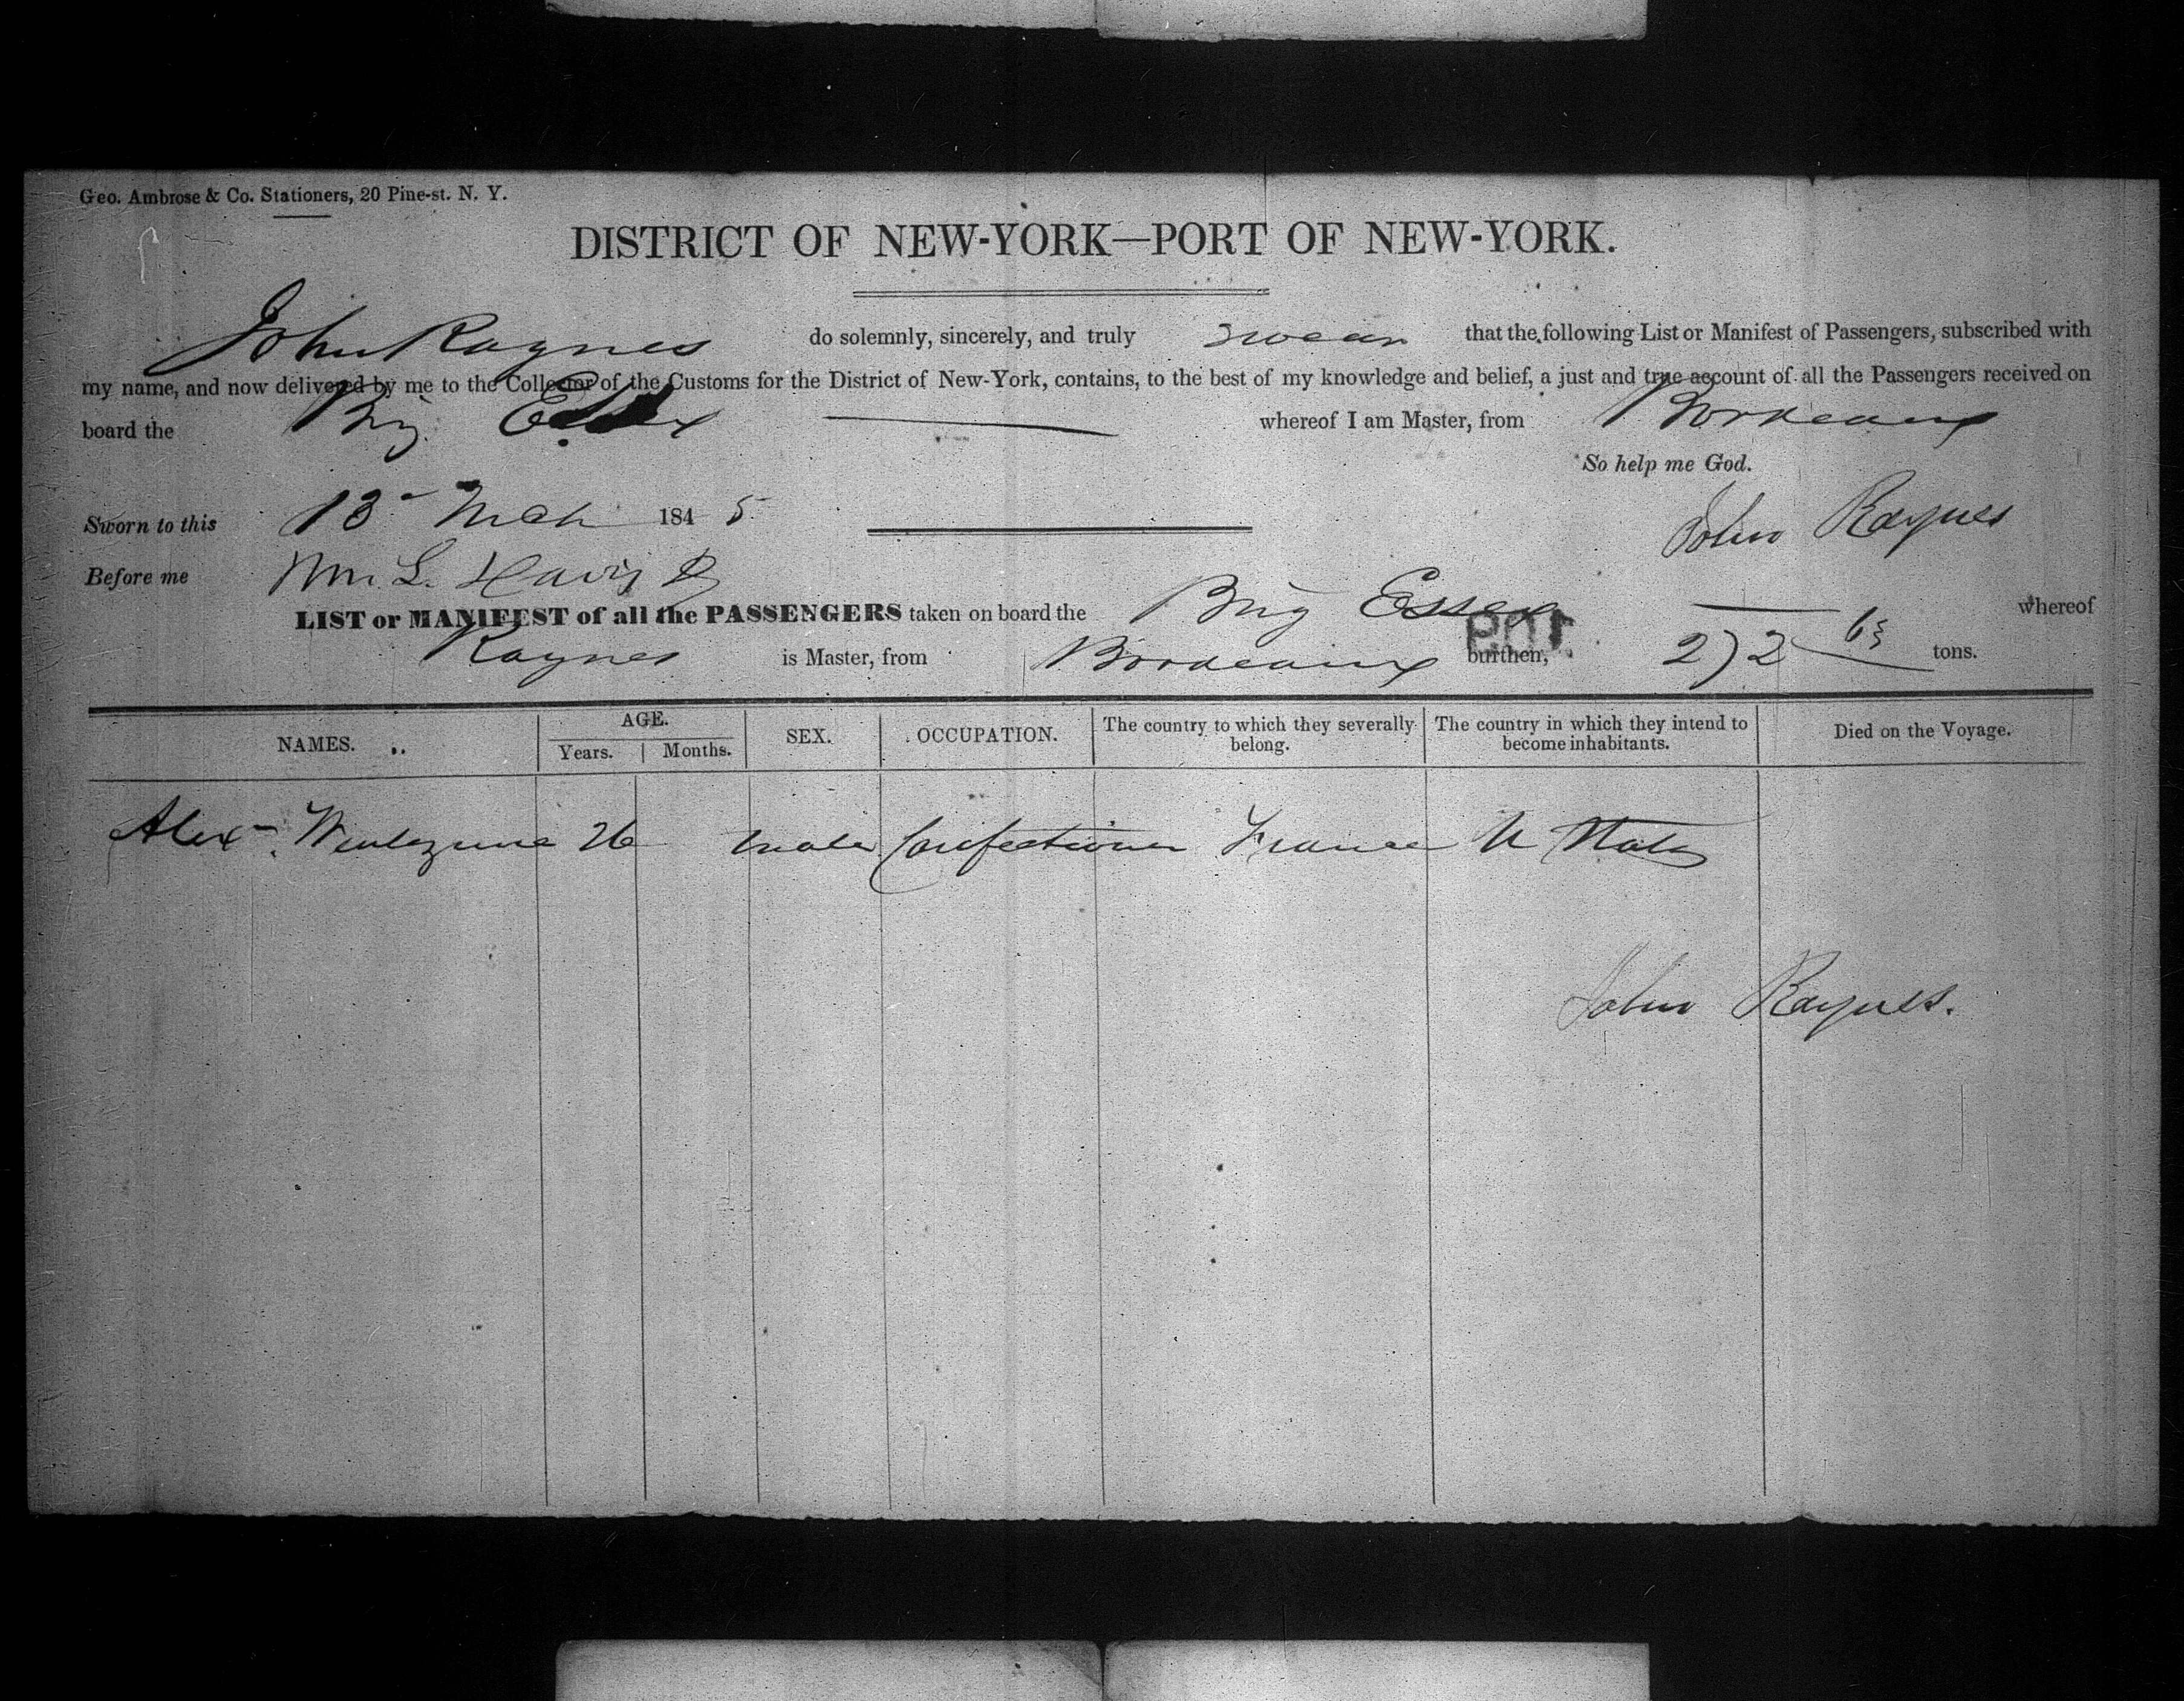 Geo. Ambrose & Co. Stationers, 20 Pine-st. N. Y.
DISTRICT OF NEW-YORK—PORT OF NEW-YORK.
John Raynes do solemnly, sincerely, and truly swear that the following List or Manifest of Passengers, subscribed with
my name, and now delivered by me to the Collector of the Customs for the District of New-York, contains, to the best of my knowledge and belief, a just and true account of all the Passengers received on
board the Brig Essex whereof I am Master, from Bordeaux
So help me God.
Sworn to this 13 Mch 1845
John Raynes
Before me Wm L. Davis
LIST or MANIFEST of all the PASSENGERS taken on board the Brig Essex whereof
Raynes is Master, from Bordeaux burthen, tons.
NAMES. AGE. SEX. OCCUPATION. The country to which they severally belong. The country in which they intend to become inhabitants. Died on the Voyage.
Years. Months.
Alex 26 male Confectioner France U States
John Raynes.